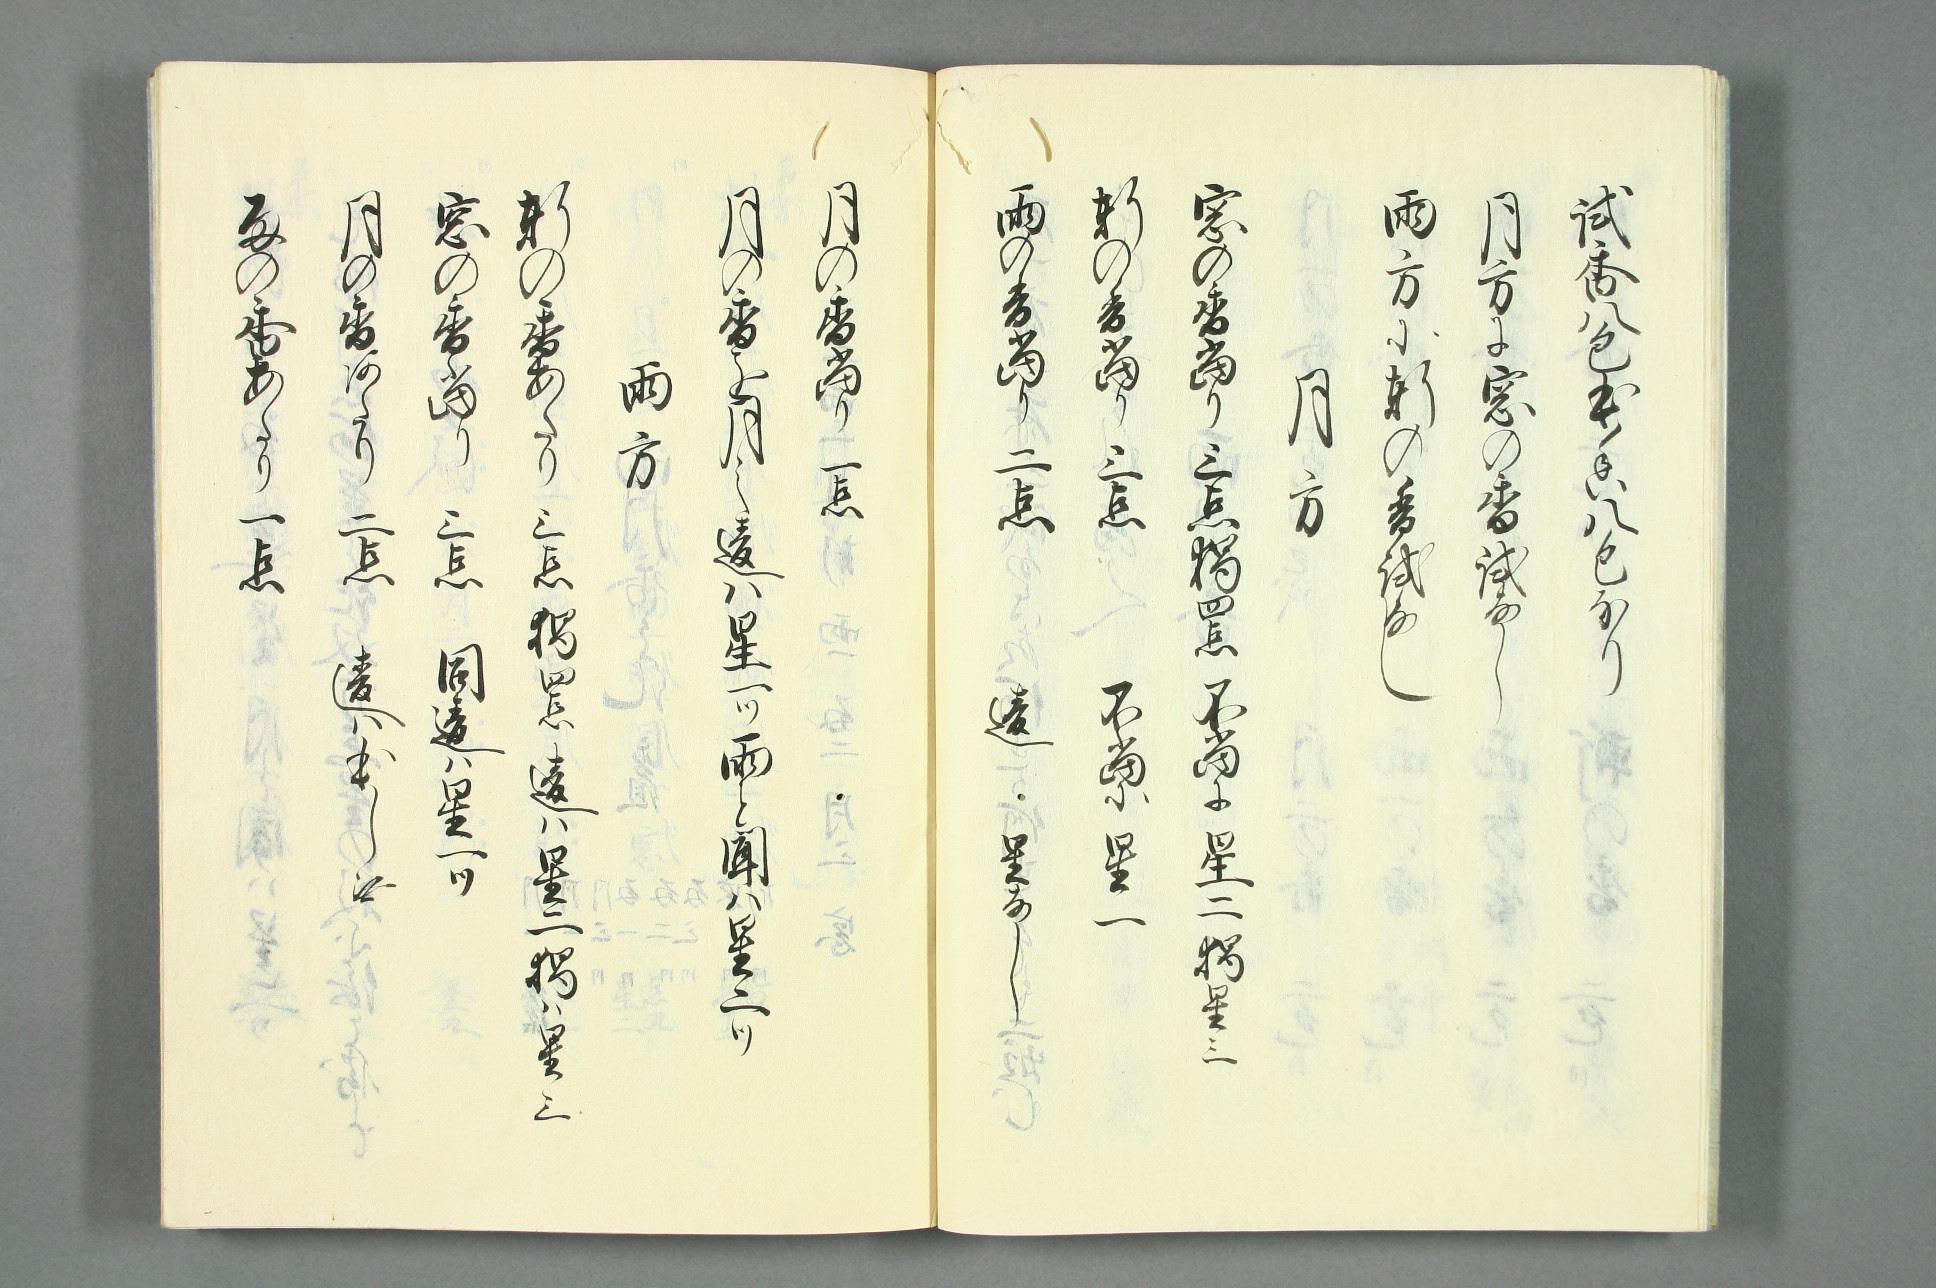 試香八包出香八包なり
月方に窓の香試なし
雨方に軒の香試なし
月方
窓の香当り三点独四点不当に星二独星三
軒の香当り三点不当に星一
雨の香当り二点違星なし
月の香当り一点
月の香を月之違ハ星一ツ雨と聞ハ星二ツ
雨方
軒の香あたり三点独四点違ハ星二独ハ星三
窓の香当り三点同違ハ星一ツ
月の香あたり二点違ハ
雨の香あたり一点